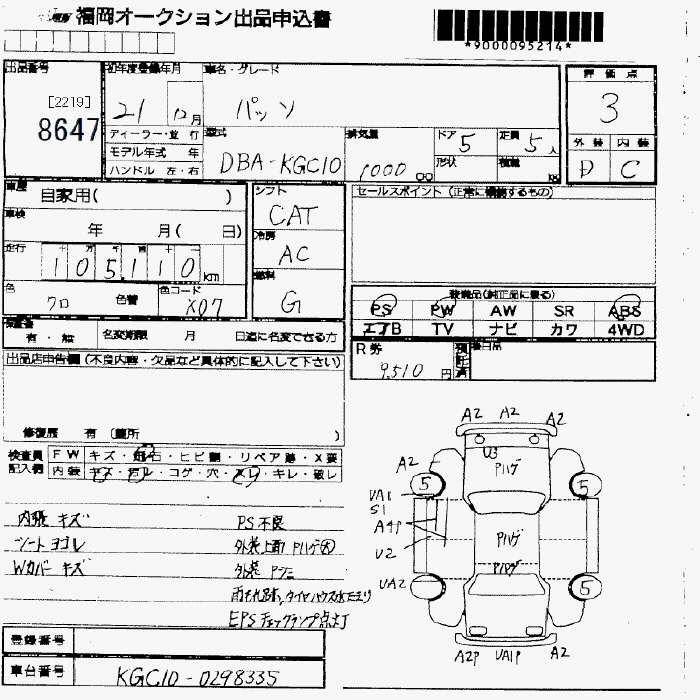 福岡オークション出品申込書
*9000095214*
出品番号
[2219]
8647
初年度登録年月
21 12月
車名・グレード
パッソ
評価点
3
外装 内装
D C
ディーラー・並行
モデル年式 年
ハンドル 左・右
型式
DBA-KGC10
排気量
1000 cc
ドア 5
定員 5人
形状
積載 kg
車歴 自家用( )
車検 年 月( 日)
走行 十 万 千 百 十 一
105,110 km
色 クロ 色替
色コード X07
シフト
CAT
冷房
AC
燃料
G
セールスポイント(正常に機能するもの)
装備品(純正品に限る)
PS PW AW SR ABS
エアB TV ナビ カワ 4WD
有・無 名変期限 月 日迄に名変できる方
R券 9,510 円
出品店申告欄(不良内容・欠品など具体的に記入して下さい)
修復歴 有 〔箇所 〕
検査員記入欄
FW キズ・飛石・ヒビ割・リペア跡・X要
内装 キズ・汚レ・コゲ・穴・スレ・キレ・破レ
内張 キズ PS不良
シート ヨゴレ 外装上面Pハゲ大
Wカバー キズ 外装
EPSチェックランプ点灯
A2 A2 A2
U3
Pハゲ
A2
5 5
UA1
S1
A4P
U2
Pハゲ
Pハゲ
UA2
5
A2P UA1P A2
登録番号
車台番号 KGC10-0298335